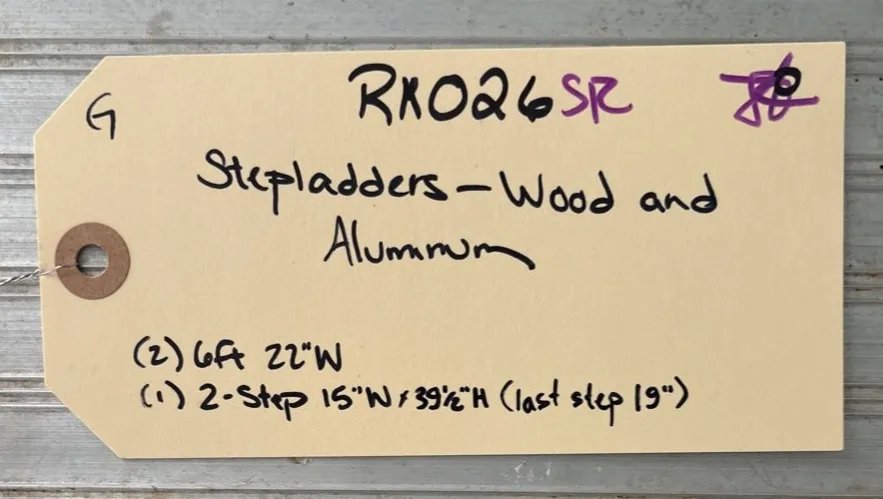 G
RX026SR
Stepladders - Wood and
Aluminum
(2) 6ft 22"W
(1) 2-Step 15"W x 39½"H (last step 19")